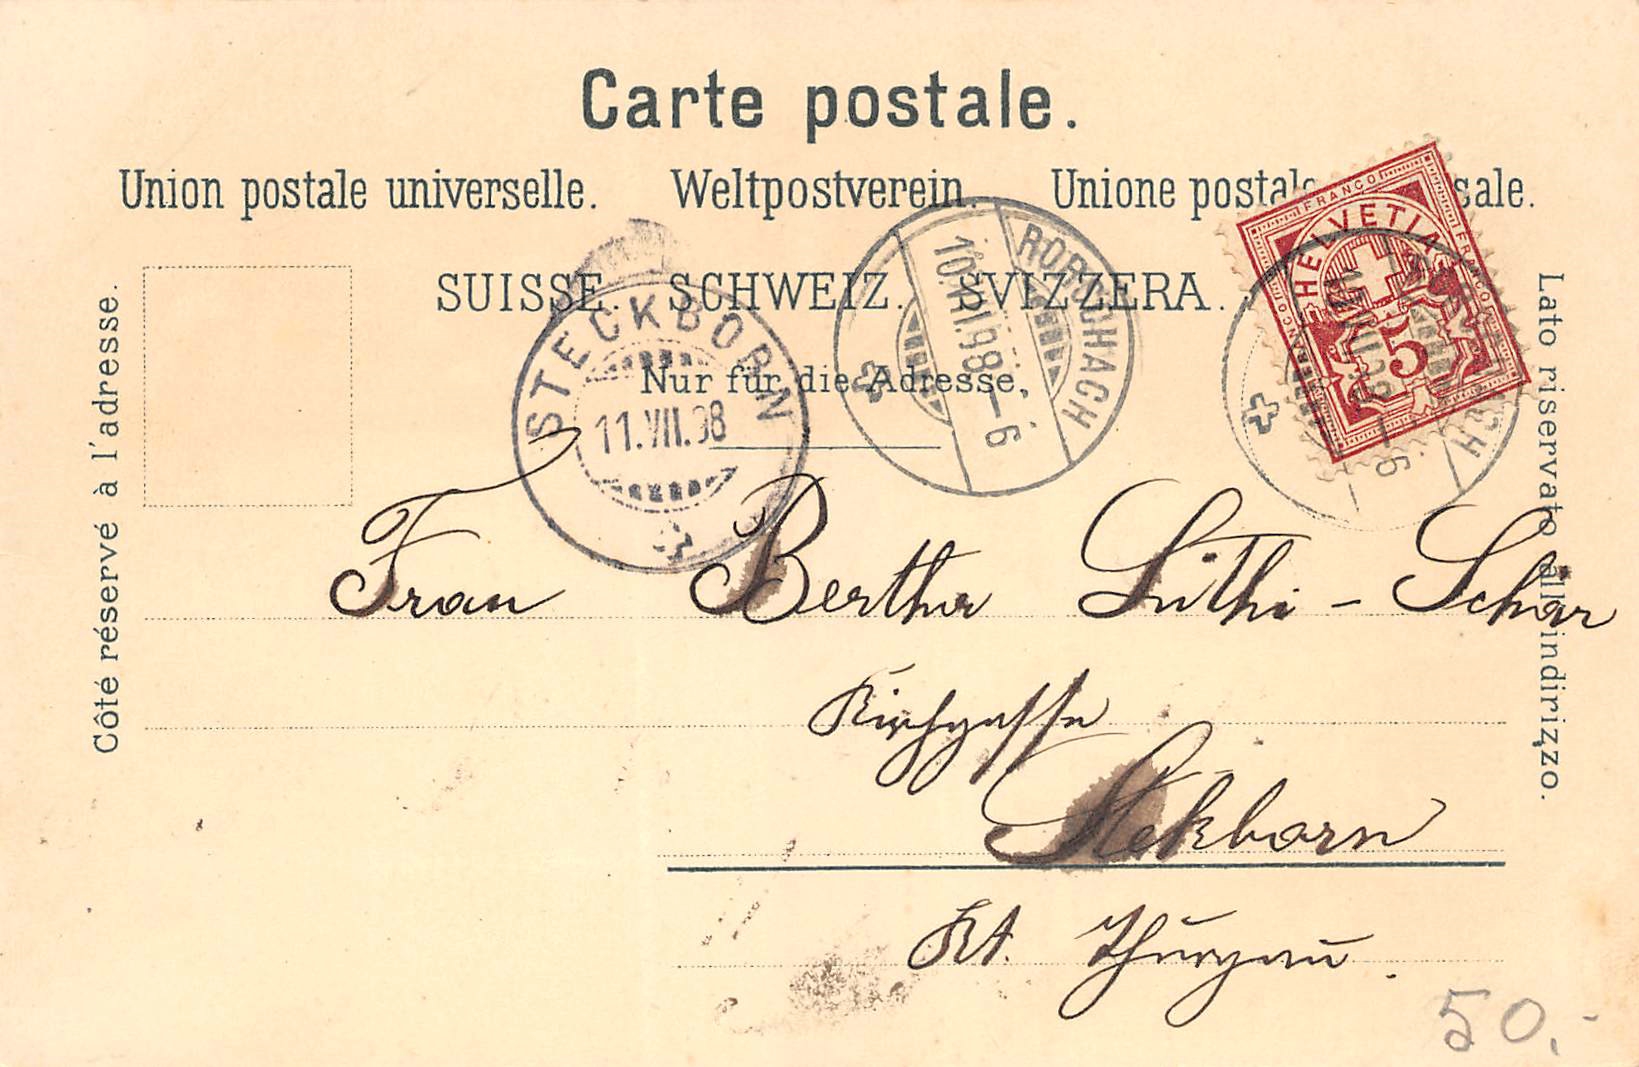 Carte postale.
Union postale universelle. Weltpostverein. Unione postale sale.
SUISSE. SCHWEIZ. SVIZZERA.
Nur für die Adresse.
Côté réservé à l'adresse.
Lato riservato all'indirizzo.
STECKBORN
11.VII.98
RORSCHACH
10.VII.98–6
FRANCO
HELVETIA
FRANCO
FRANCO
5
Frau Bertha Lüthi - Schär
Kirchgasse
Stekborn
Kt. Thurgau.
50.-